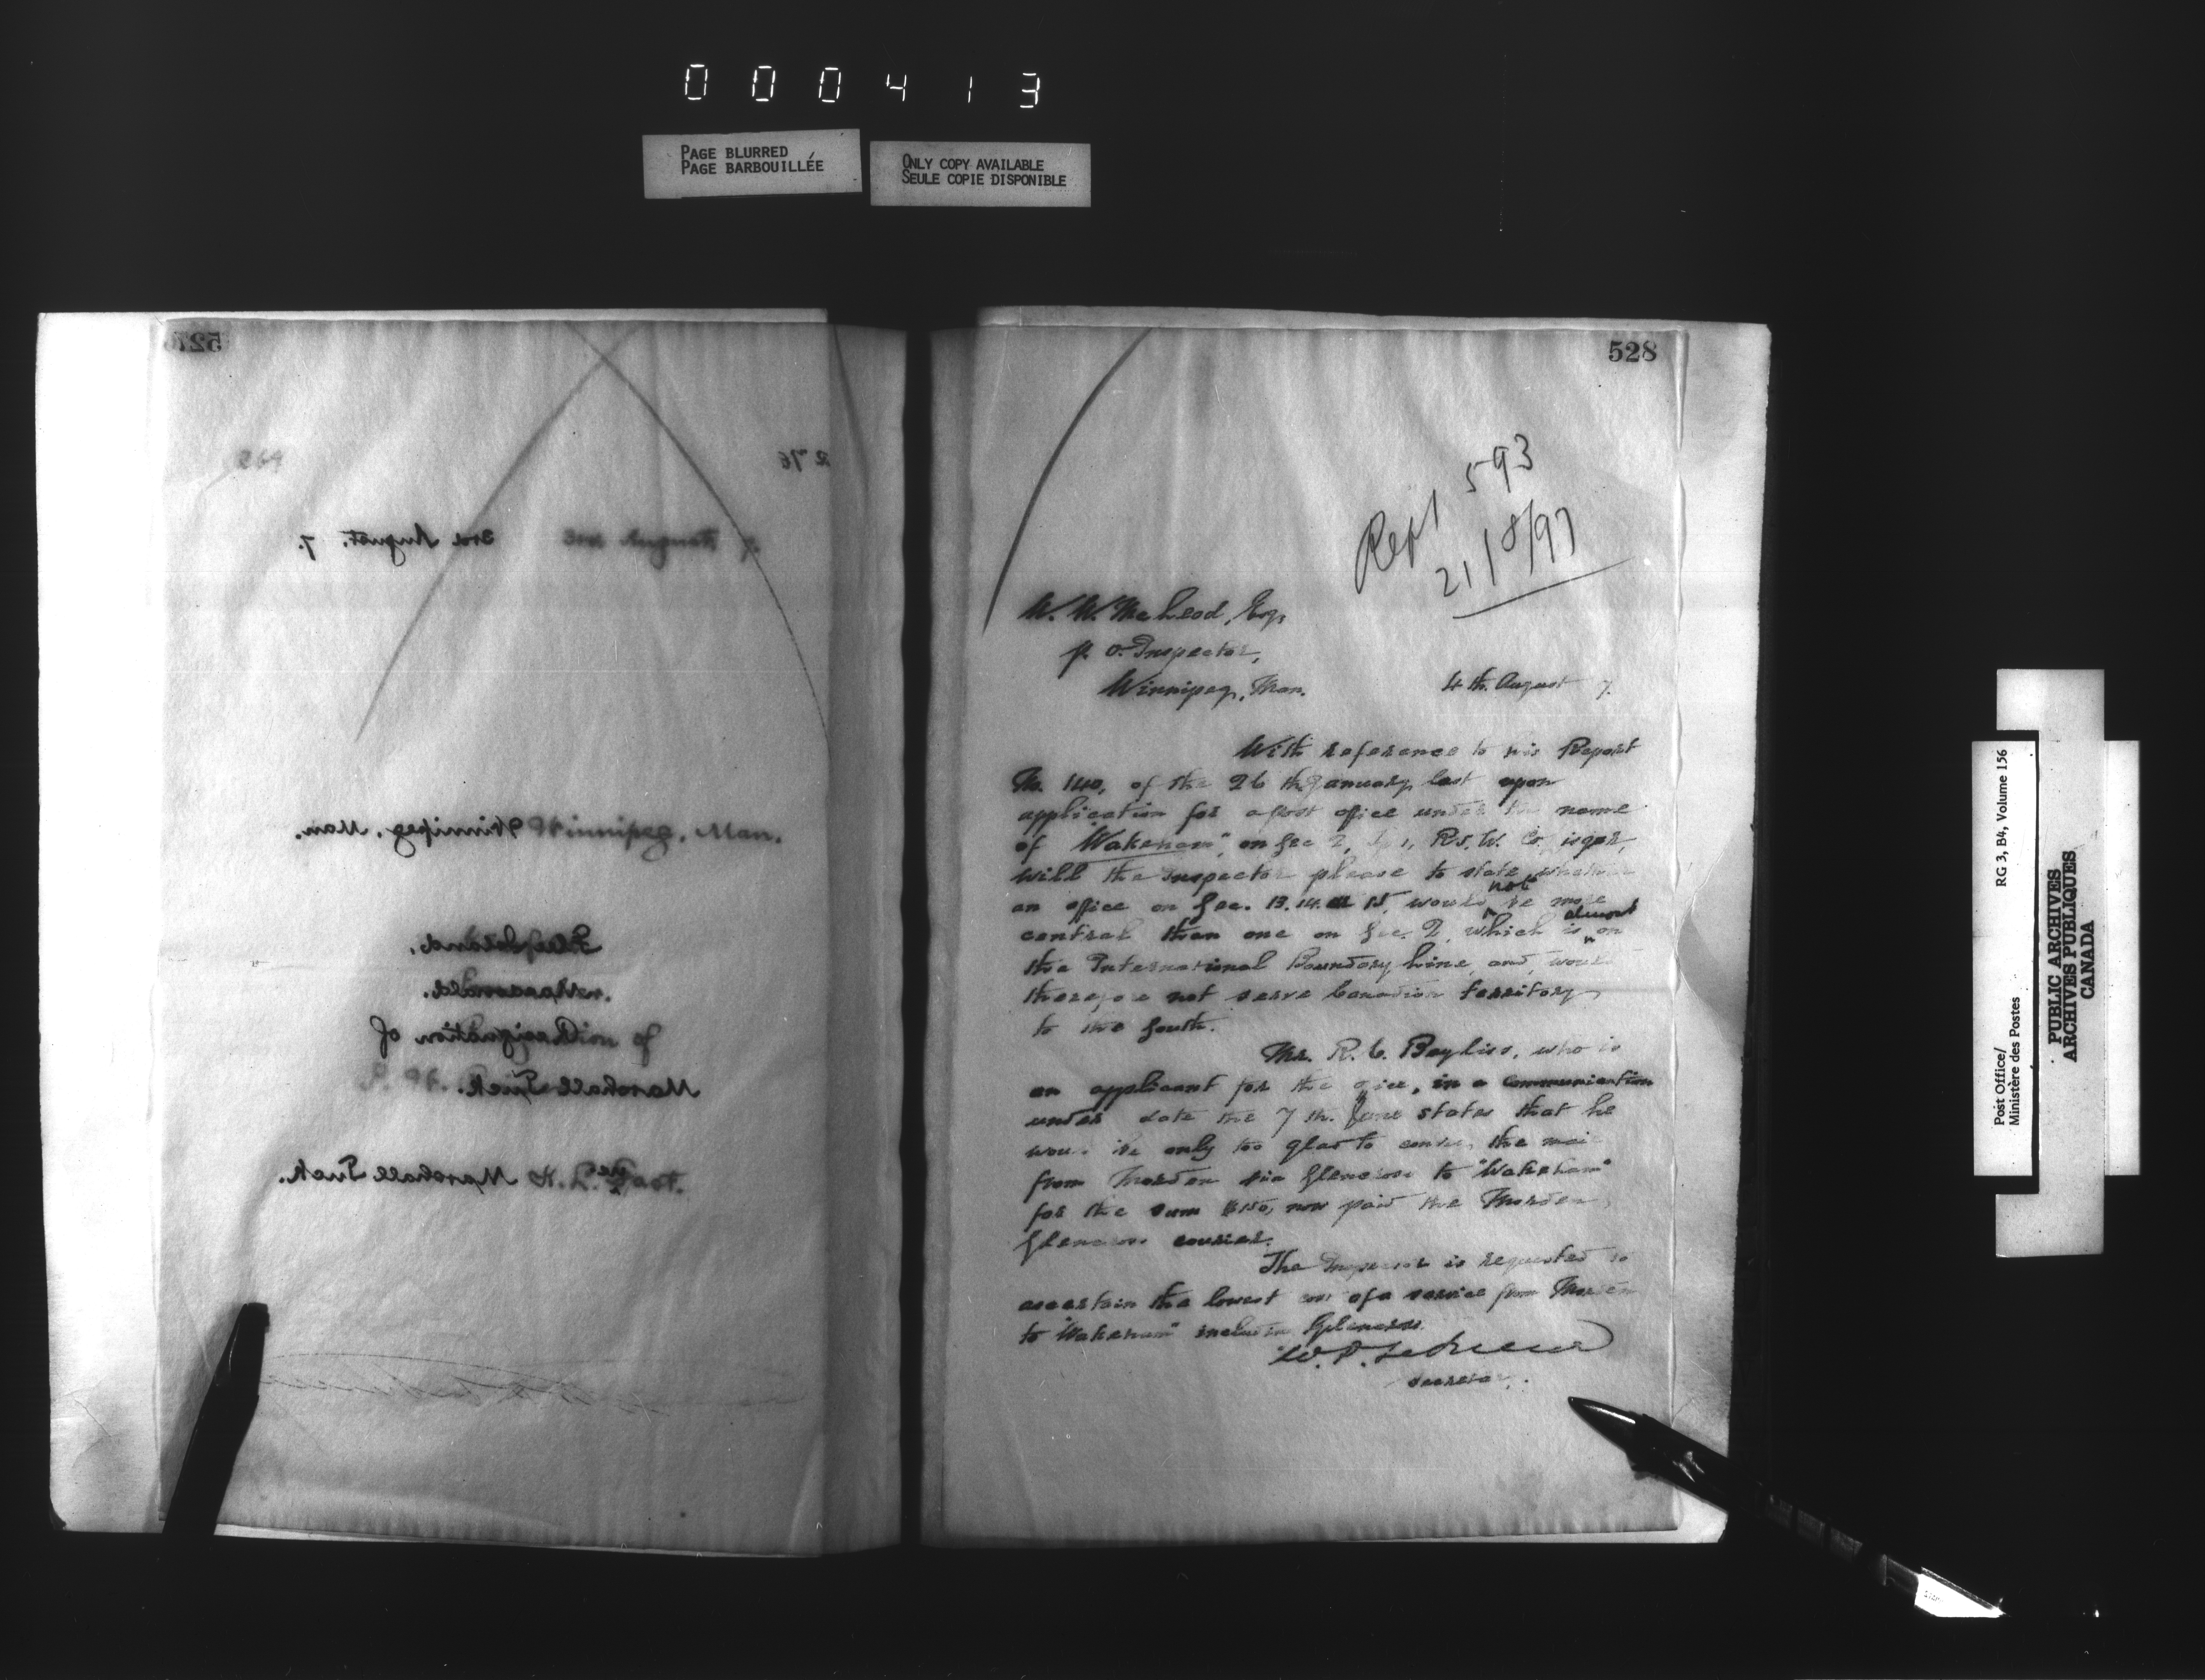 000413
PAGE BLURRED
PAGE BARBOUILLÉE
ONLY COPY AVAILABLE
SEULE COPIE DISPONIBLE
527
264
276
3rd August. 7.
Winnipeg, Man.
Winnipeg, Man.
resignation of
Marshall Tuck.
Marshall Tuck.
528
Rept 593
21/8/97
W. W. McLeod, Esq,
P. O. Inspector,
Winnipeg, Man.
4th. August 7.
With reference to his Report
No. 140, of the 26th January last upon
application for a post office under the name
of "Wakeham", on Sec 2, R5, W. Co.
will the Inspector please to state whether
an office on Sec. 13. 14. 15, would not be more
central than one on Sec. 2, which is almost on
the International Boundary Line, and, would
therefore not serve Canadian territory
to the South.
Mr. R. C. Bayliss, who is
an applicant for the office, in a communication
under date the 7th. June states that he
would be only too glad to convey the mail
from Morden via Glencross to "Wakeham"
for the sum $150, now paid the Morden,
Glencross courier.
The Inspector is requested to
ascertain the lowest cost of a service from Morden
to "Wakeham" including Glencross.
Secretary.
Post Office/
Ministère des Postes
RG 3, B4, Volume 156
PUBLIC ARCHIVES
ARCHIVES PUBLIQUES
CANADA